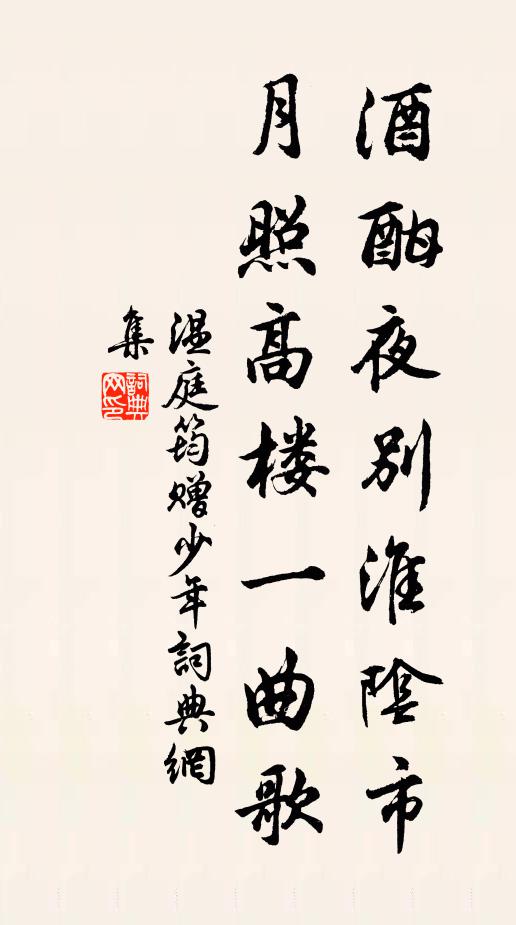 酒酣夜别淮陰市
月照高楼一曲歌
温庭筠赠少年詞典網
集
詞典网印